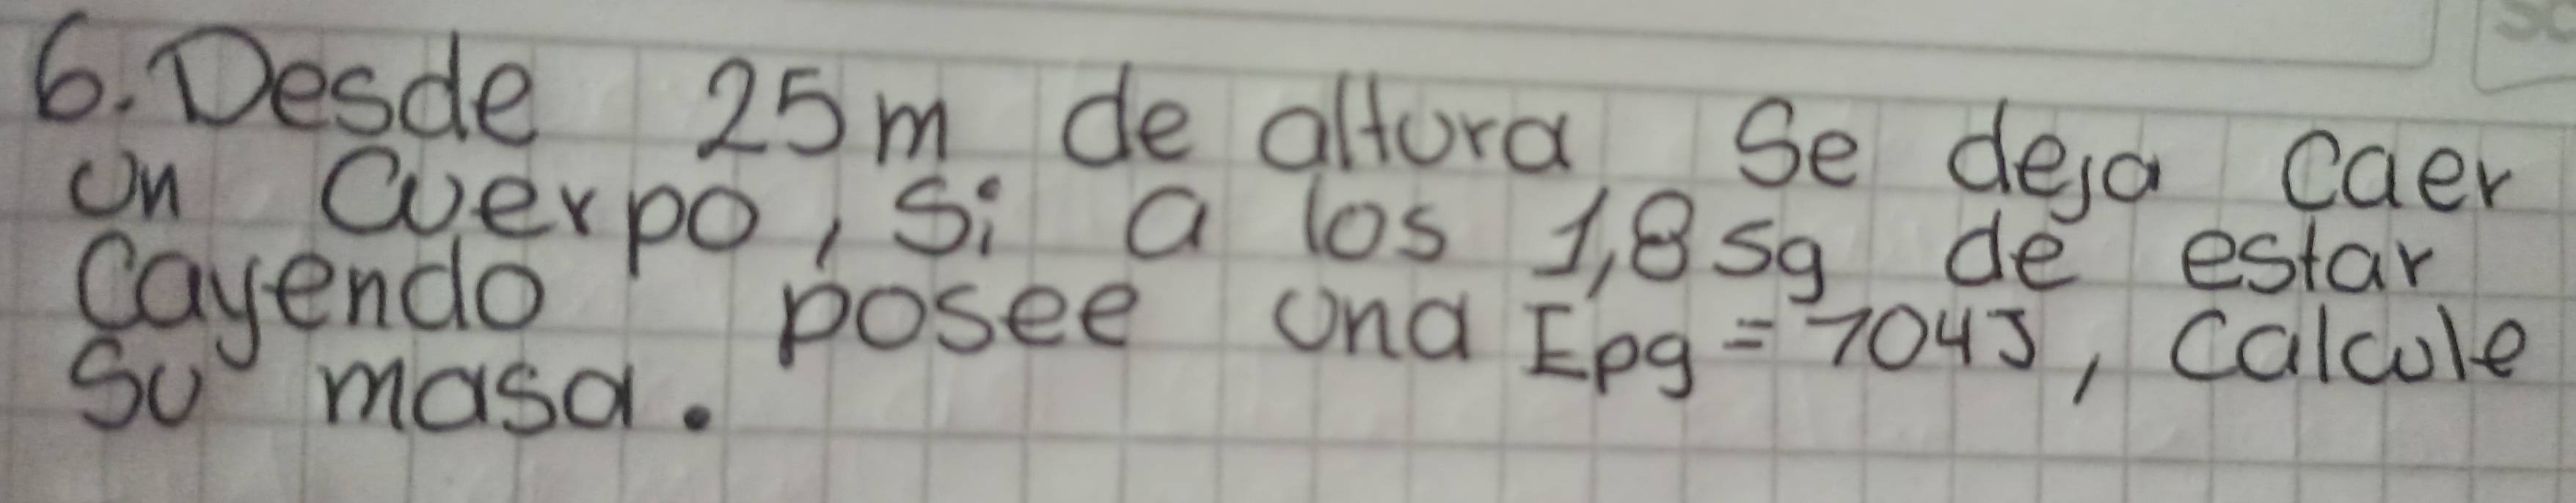 6. Desde 25m de altura Se deja caer
un Cuerpo, Si a los 1,8 sg de estar
Cayendo posee una Epg = 704J, Calcule
Su masa.